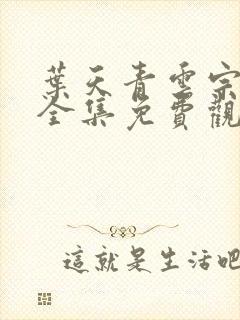 葉天青雲宗
全集免費觀
這就是生活吧